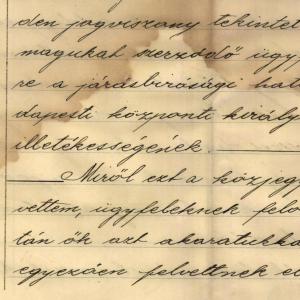 den jogviszony tekintet
magukat szerződő ügyf
re a járásbirósági hatá
dapesti központi király
illetékességének.
Miről ezt a közjegy
vettem, ügyfeleknek felol
tán ők azt akaratukka
egyezően felvettnek e